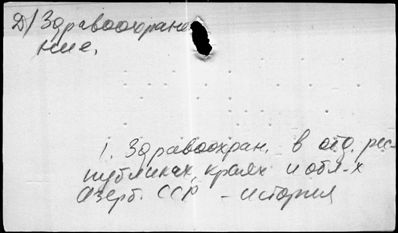 Д/ Здравоохране
ние.
1. Здравоохран. в отд. рес-
публиках, краях и обл-х
Азерб. ССР - история